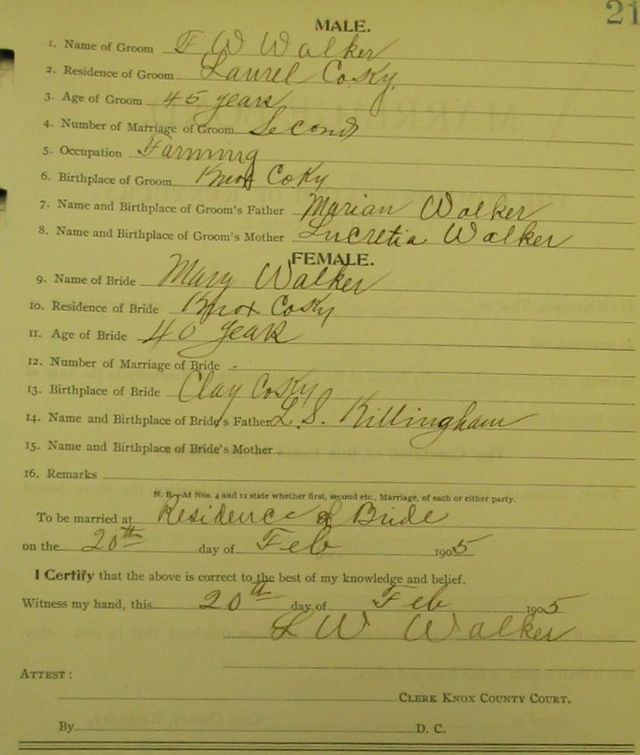 21
MALE.
1. Name of Groom F W Walker
2. Residence of Groom Laurel Co Ky.
3. Age of Groom 45 years
4. Number of Marriage of Groom Second
5. Occupation Farming
6. Birthplace of Groom Knox Co Ky
7. Name and Birthplace of Groom's Father Marian Walker
8. Name and Birthplace of Groom's Mother Lucretia Walker
FEMALE.
9. Name of Bride Mary Walker
10. Residence of Bride Knox Co Ky
11. Age of Bride 40 years
12. Number of Marriage of Bride
13. Birthplace of Bride Clay Co Ky
14. Name and Birthplace of Bride's Father L. S. Killingham
15. Name and Birthplace of Bride's Mother
16. Remarks
N. B.—At Nos. 4 and 12 state whether first, second etc., Marriage, of each or either party.
To be married at Residence of Bride
on the 20th day of Feb 1905
I Certify that the above is correct to the best of my knowledge and belief.
Witness my hand, this 20th day of Feb 1905
L W Walker
ATTEST:
CLERK KNOX COUNTY COURT.
By D. C.